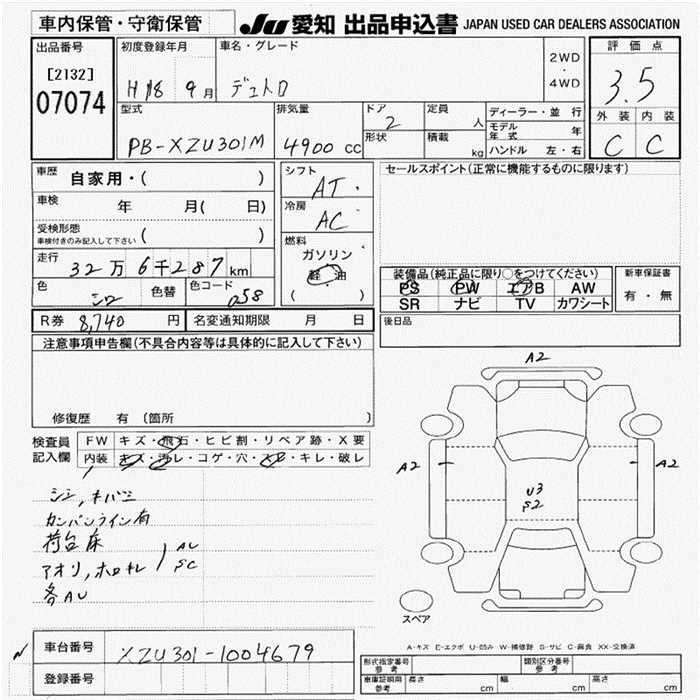 車内保管・守衛保管
JU 愛知 出品申込書 JAPAN USED CAR DEALERS ASSOCIATION
出品番号
[2132]
07074
初度登録年月
H18 9月
車名・グレード
デュトロ
2WD
・
4WD
評価点
3.5
外装 内装
C C
型式
PB-XZU301M
排気量
4900 cc
ドア
2
形状
定員
人
積載
kg
ディーラー・並行
モデル年式 年
ハンドル 左・右
車歴
自家用・( )
車検
年 月( 日)
受検形態
車検付きのみ記入して下さい ( )
走行
32万6千287km
色
シロ
色替
色コード
058
シフト
AT
冷房
AC
燃料
ガソリン
軽油
( )
セールスポイント(正常に機能するものに限ります)
装備品(純正品に限り○をつけてください)
PS PW エアB AW
SR ナビ TV カワシート
新車保証書
有・無
R券 8,740 円
名変通知期限 月 日
後日品
注意事項申告欄(不具合内容等は具体的に記入して下さい)
修復歴 有 (箇所
検査員
記入欄
FW キズ・飛石・ヒビ割・リペア跡・X要
内装 キズ・汚レ・コゲ・穴・スレ・キレ・破レ
シン,キバミ
カンバンライン有
荷台床
アオリ,ホロキレ
AU
SC
各AU
A2
A2
A2
U3
S2
スペア
A-キズ E-エクボ U-凹み W-補修跡 S-サビ C-腐食 XX-交換済
車台番号 XZU301-1004679
登録番号
形式指定番号
参考
類別区分番号
参考
車庫証明用
参考
長さ cm 幅 cm 高さ cm